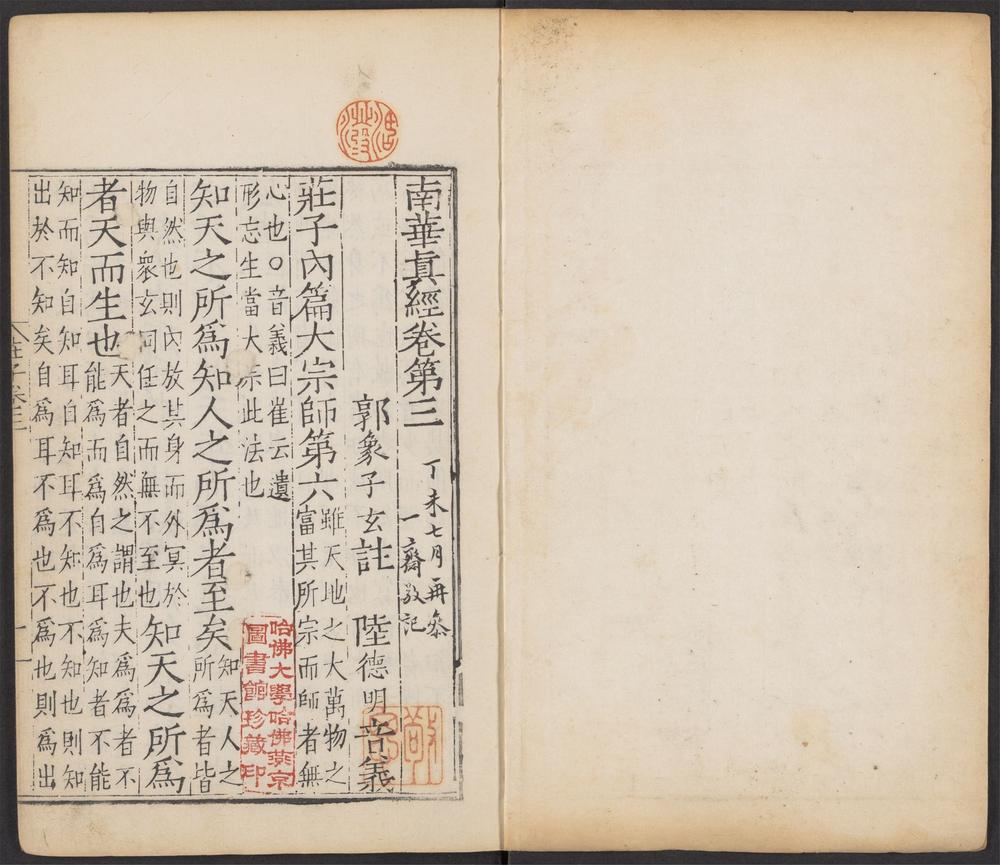 南華眞經卷第三
丁未七月再叅
一齋敬記
郭象子玄註　陸德明音義
莊子內篇大宗師第六
雖天地之大萬物之
富其所宗而師者無
心也○音義曰崔云遺
形忘生當大宗此法也
知天之所爲知人之所爲者至矣
知天人之
所爲者皆
自然也則內放其身而外冥於
物與衆玄同任之而無不至也
知天之所爲
者天而生也
天者自然之謂也夫爲爲者不
能爲而爲自爲耳爲知者不能
知而知自知耳自知耳不知也不知也則知
出於不知矣自爲耳不爲也不爲也則爲出
莊子卷三
一
哈佛大學哈佛燕京
圖書館珍藏印